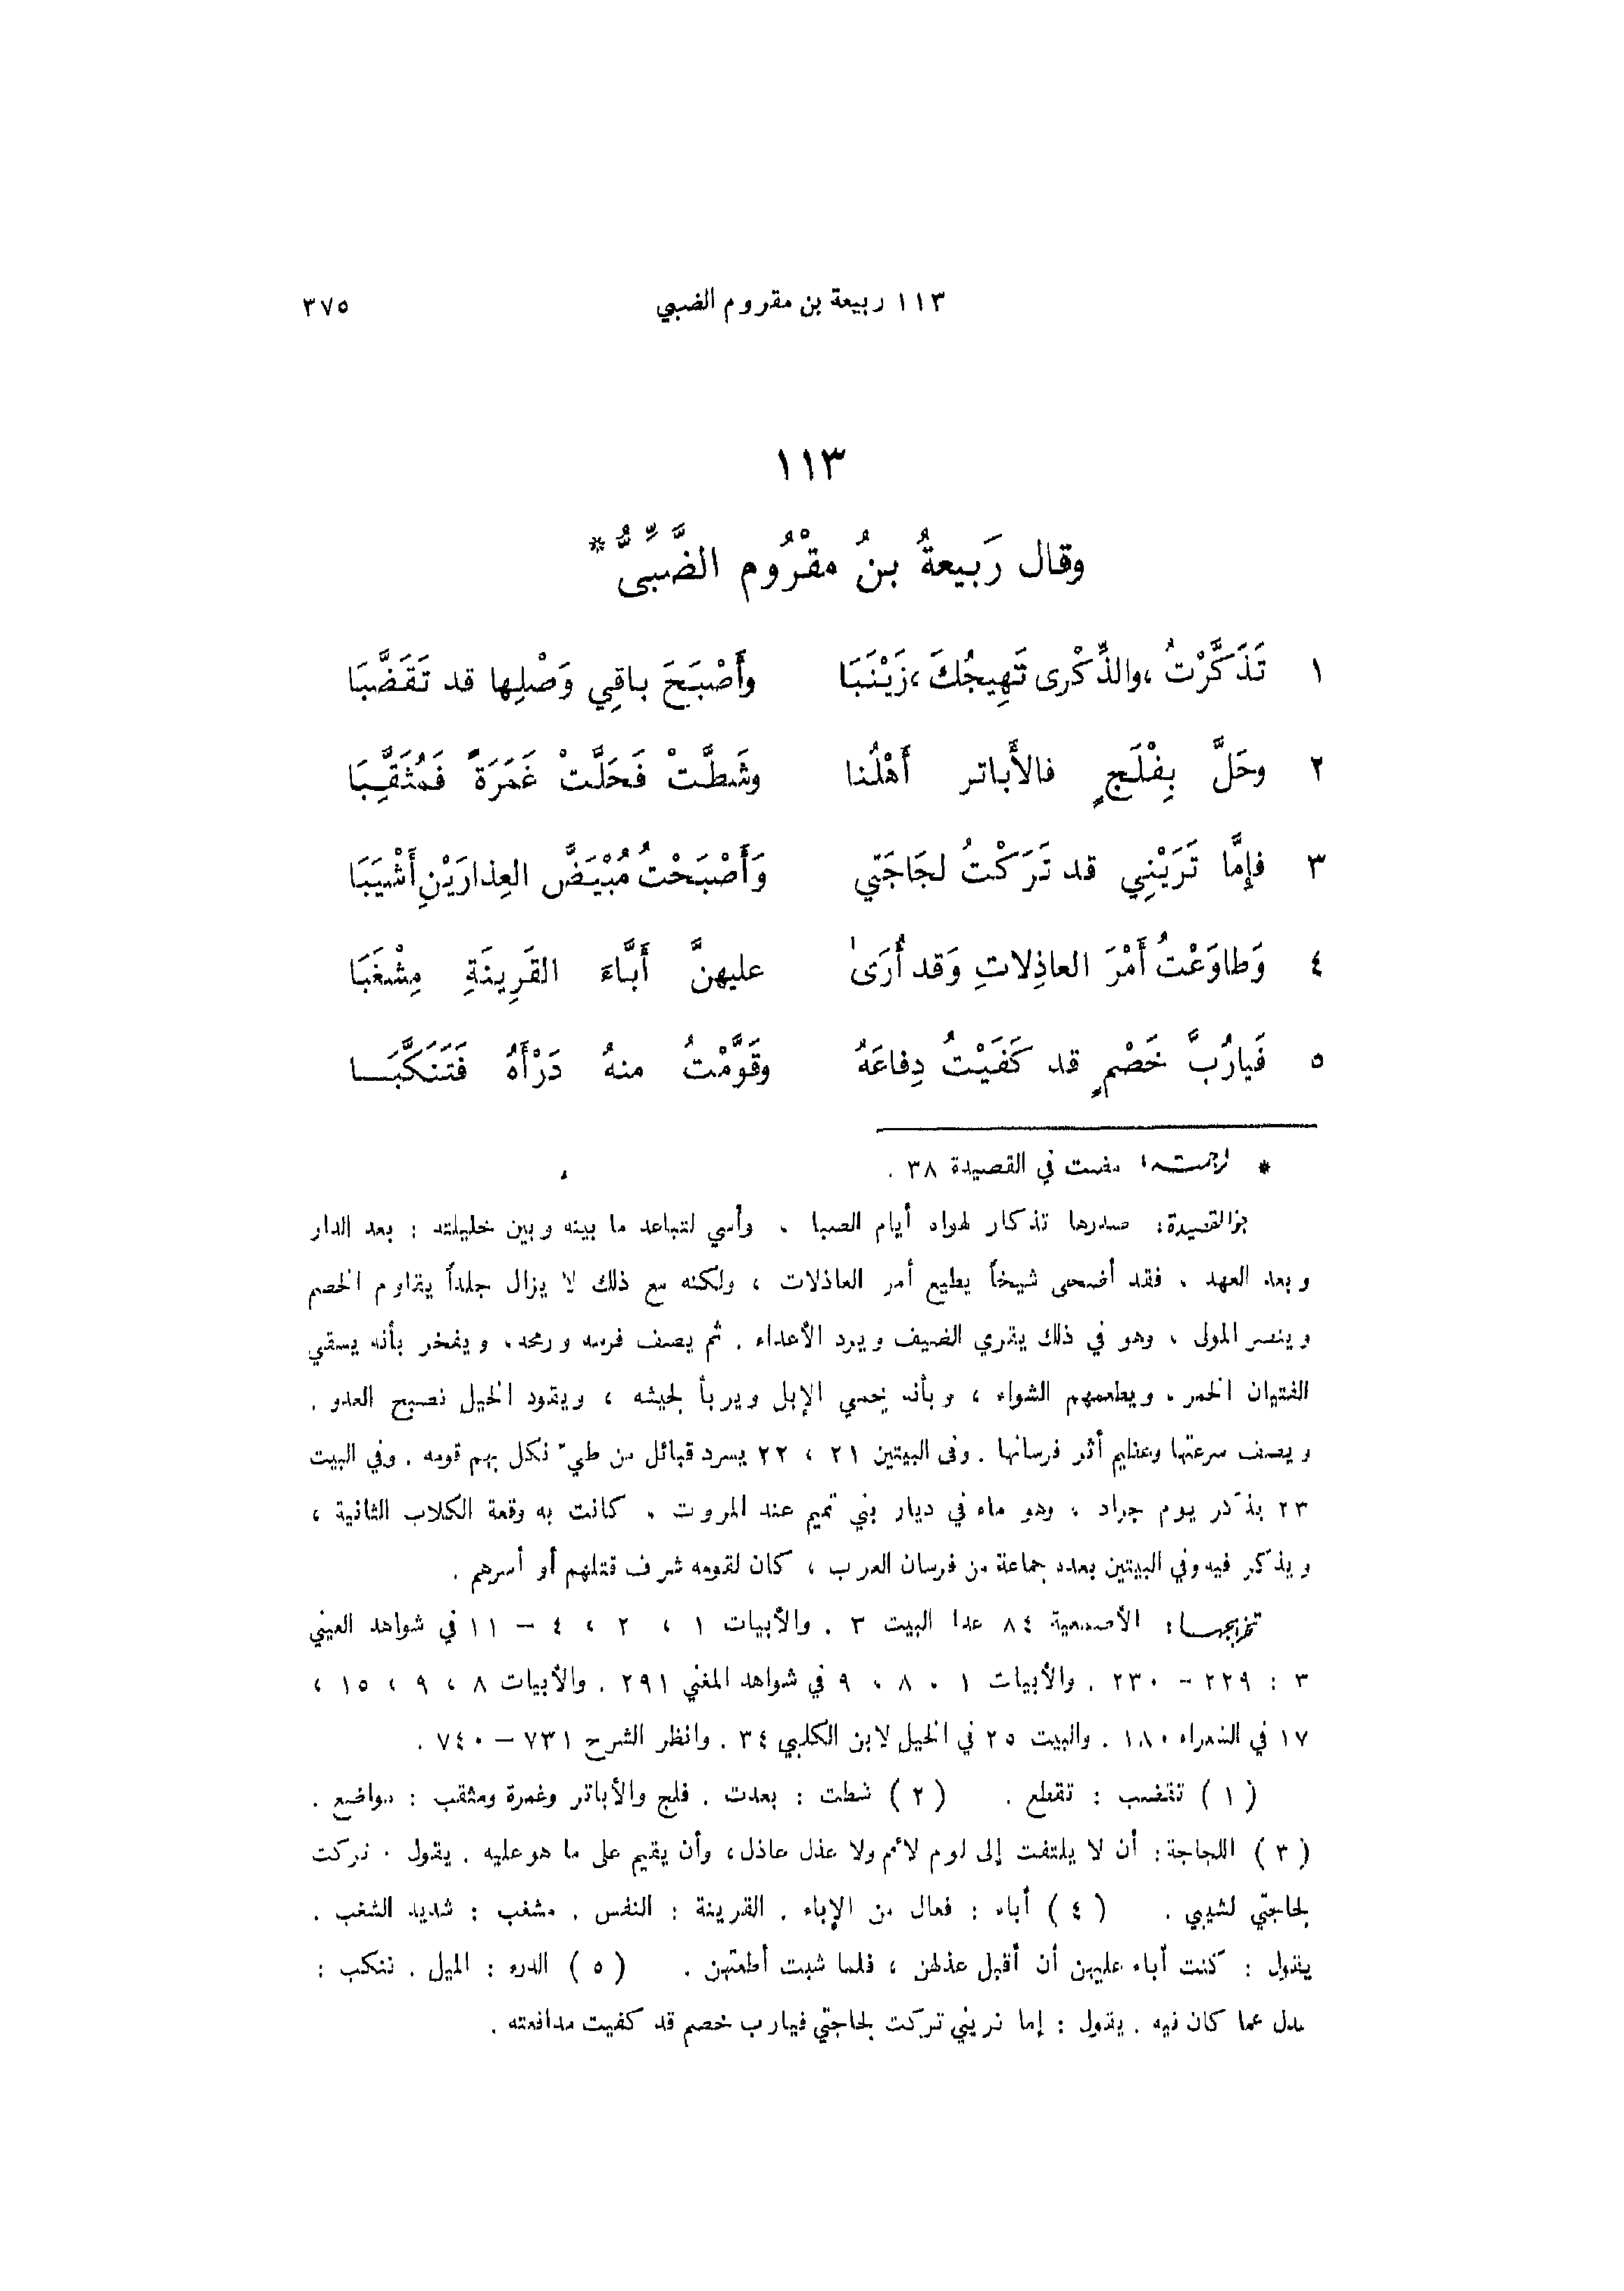 ١١٣ ربيعة بن مقروم الضبي ٣٧٥
١١٣
وقال رَبيعةُ بنُ مقْرُوم الضَّبِّىُّ *
١ تَذَكَّرْتُ ،والذِّكْرى تَهِيجُكَ ،زَيْنَبَا وأَصْبَحَ باقِي وَصْلِها قد تَقَضَّبَا
٢ وحَلَّ بِفْلَجٍ فالأَباتر أَهْلُنا وشَطَّتْ فَحَلَّتْ غَمَرَةً فَمُثَقِّبَا
٣ فإِمَّا تَرَيْنِي قد تَرَكْتُ لجَاجَتِي وَأَصْبَحْتُ مُبْيَضَّ العِذارَيْنِ أَشْيَبَا
٤ وَطاوَعْتُ أَمْرَ العاذِلاتِ وَقد أُرَىٰ عليهنَّ أَبَّاءَ القَرِينَةِ مِشْغَبَا
٥ فَيارُبَّ خَصْمٍ قد كَفَيْتُ دِفاعَهُ وقَوَّمْتُ منهُ دَرْأَهُ فَتَنَكَّبَـا
* ترجمته: مضت في القصيدة ٣٨ .
جو القصيدة: صدرها تذكار لهواه أيام الصبا ، وأسي لتباعد ما بينه وبين خليلته : بعد الدار
وبعد العهد . فقد أضحى شيخاً يطيع أمر العاذلات ، ولكنه مع ذلك لا يزال جلداً يقاوم الخصم
وينصر المولى ، وهو في ذلك يقري الضيف ويرد الأعداء . ثم يصف فرسه ورمحه، ويفخر بأنه يسقي
الفتيان الخمر، ويطعمهم الشواء ، وبأنه يحمي الإبل ويربأ لجيشه ، ويقود الخيل تصبح العدو .
ويصف سرعتها وعظيم أثر فرسانها . وفى البيتين ٢١ ، ٢٢ يسرد قبائل من طيّ نكل بهم قومه . وفي البيت
٢٣ يذكر يوم جراد ، وهو ماء في ديار بني تميم عند المروت ، كانت به وقعة الكلاب الثانية ،
ويذكر فيه وفي البيتين بعده جماعة من فرسان العرب ، كان لقومه شرف قتلهم أو أسرهم .
تخريجها: الأصمعية ٨٤ عدا البيت ٣ . والأبيات ١ ، ٢ ، ٤ – ١١ في شواهد العيني
٣ : ٢٢٩ – ٢٣٠ . والأبيات ١ ، ٨ ، ٩ في شواهد المغني ٢٩١ . والأبيات ٨ ، ٩ ، ١٥ ،
١٧ في الشعراء ١٨٠ . والبيت ٢٥ في الخيل لابن الكلبي ٣٤ . وانظر الشرح ٧٣١ – ٧٤٠ .
( ١ ) تقضب : تقطع . ( ٢ ) شطت : بعدت . فلج والأباتر وغمرة ومثقب : مواضع .
( ٣ ) اللجاجة: أن لا يلتفت إلى لوم لائم ولا عذل عاذل، وأن يقيم على ما هو عليه . يقول : تركت
لجاجتي لشيبي . ( ٤ ) أباء : فعال من الإباء . القرينة : النفس . مشغب : شديد الشغب .
يقول : كنت أباء عليهن أن أقبل عذلهن ، فلما شبت أطعتهن . ( ٥ ) الدرء : الميل . تنكب :
عدل عما كان فيه . يقول : إما تريني تركت لجاجتي فيارب خصم قد كفيت مدافعته .